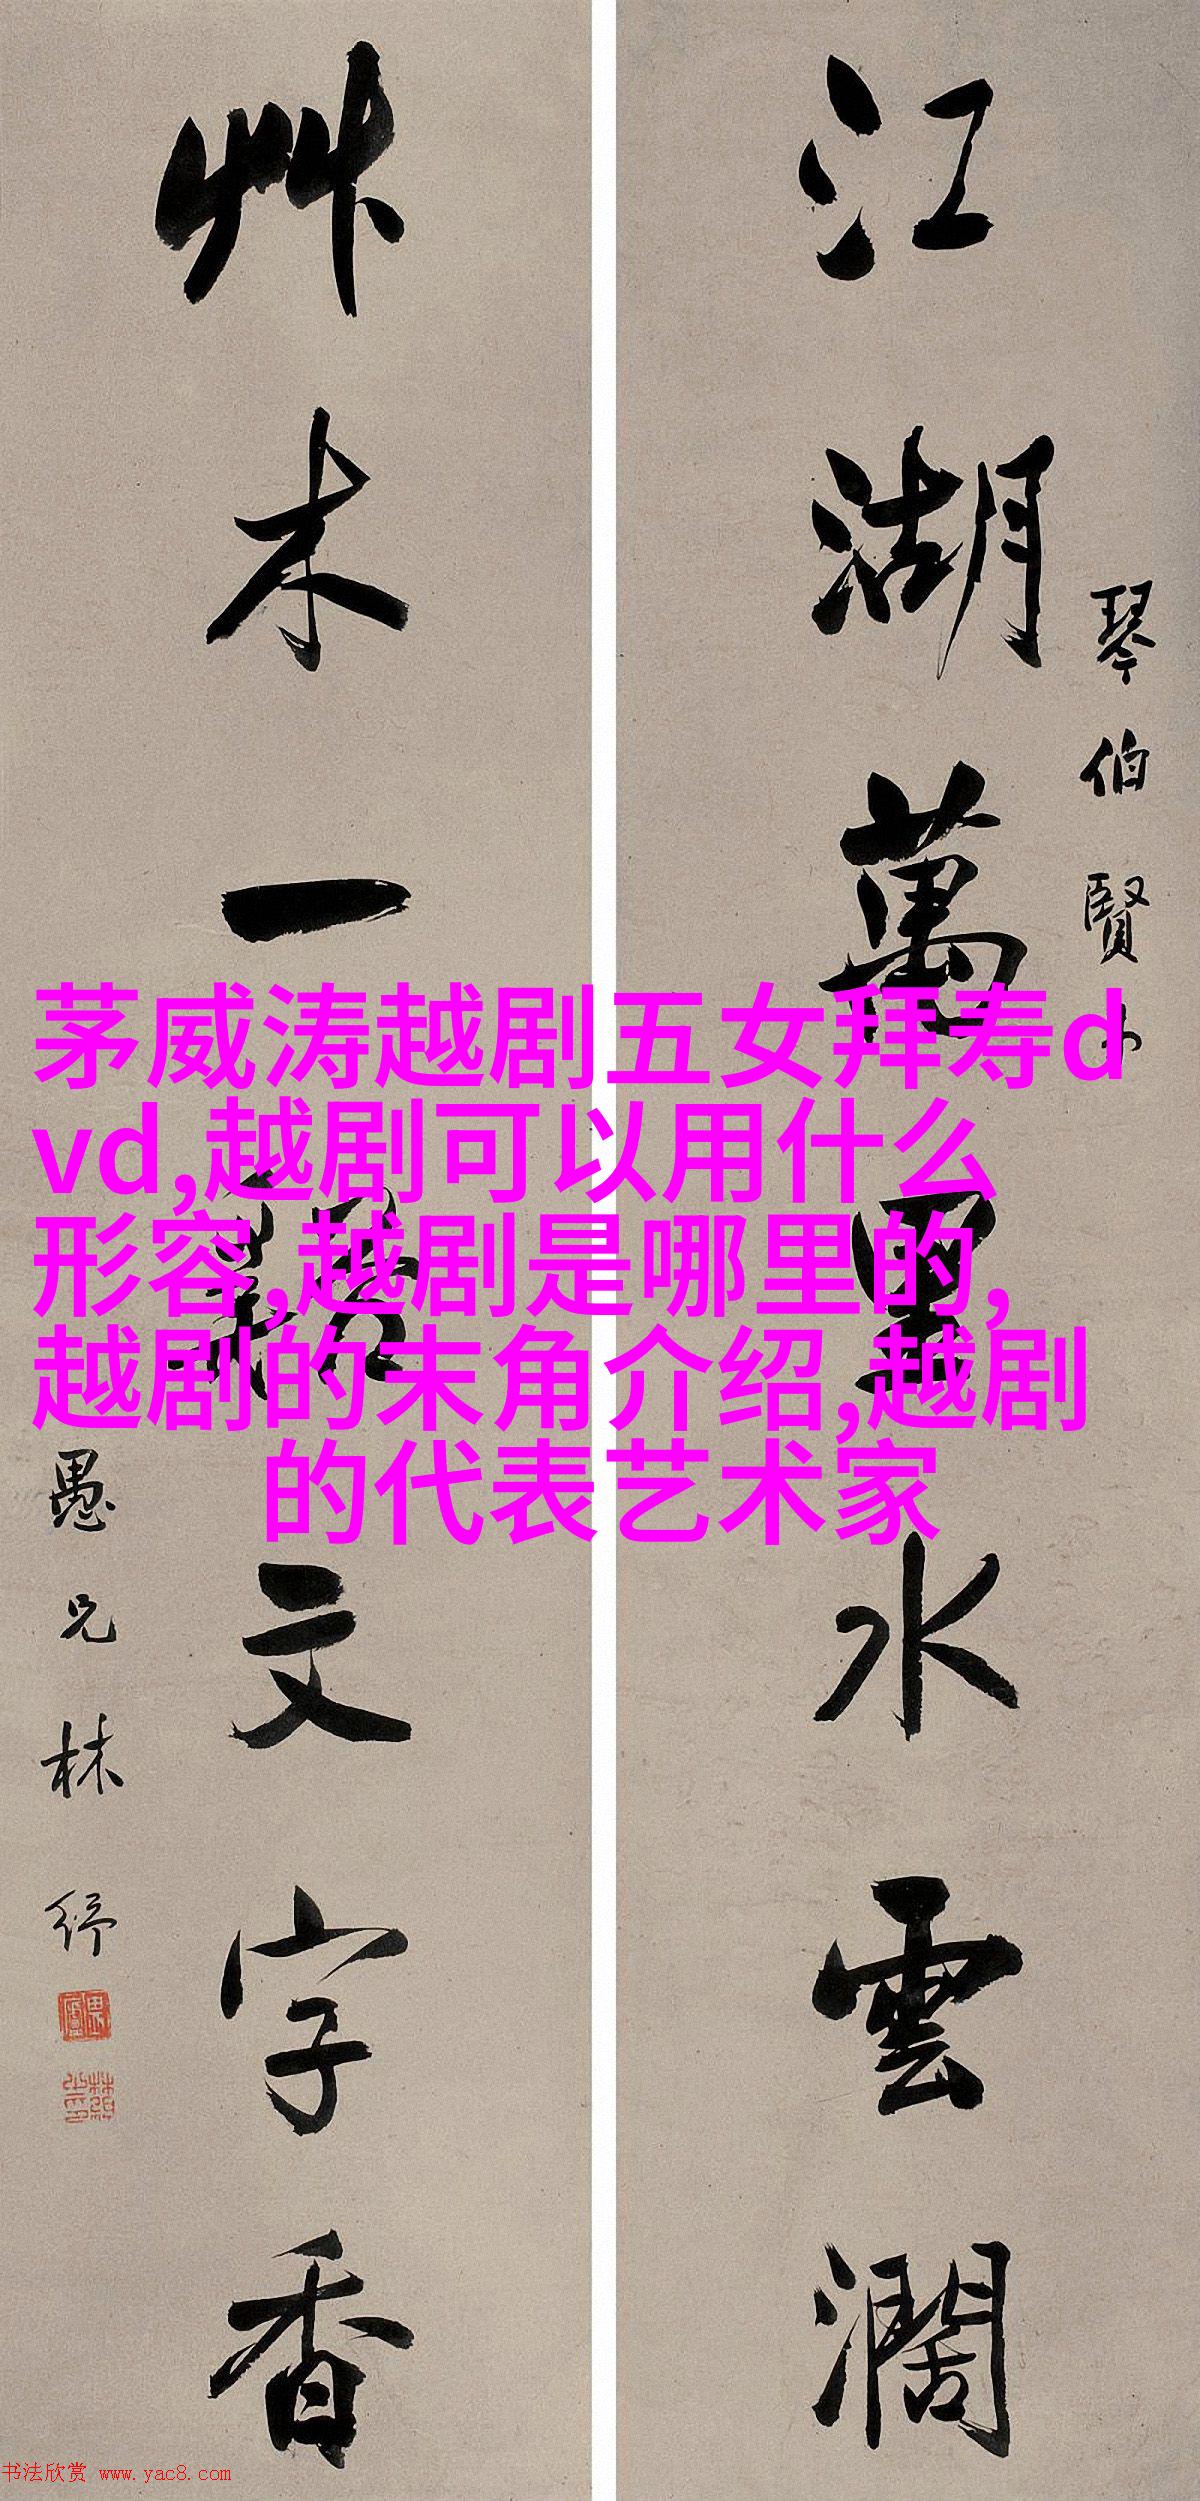 江湖萬里水雲濶
琴伯賢
草木一
文字香
愚兄林紓
茅威涛越剧五女拜寿d
vd,越剧可以用什么
形容,越剧是哪里的,
越剧的末角介绍,越剧
的代表艺术家
书法欣赏 www.yac8.com